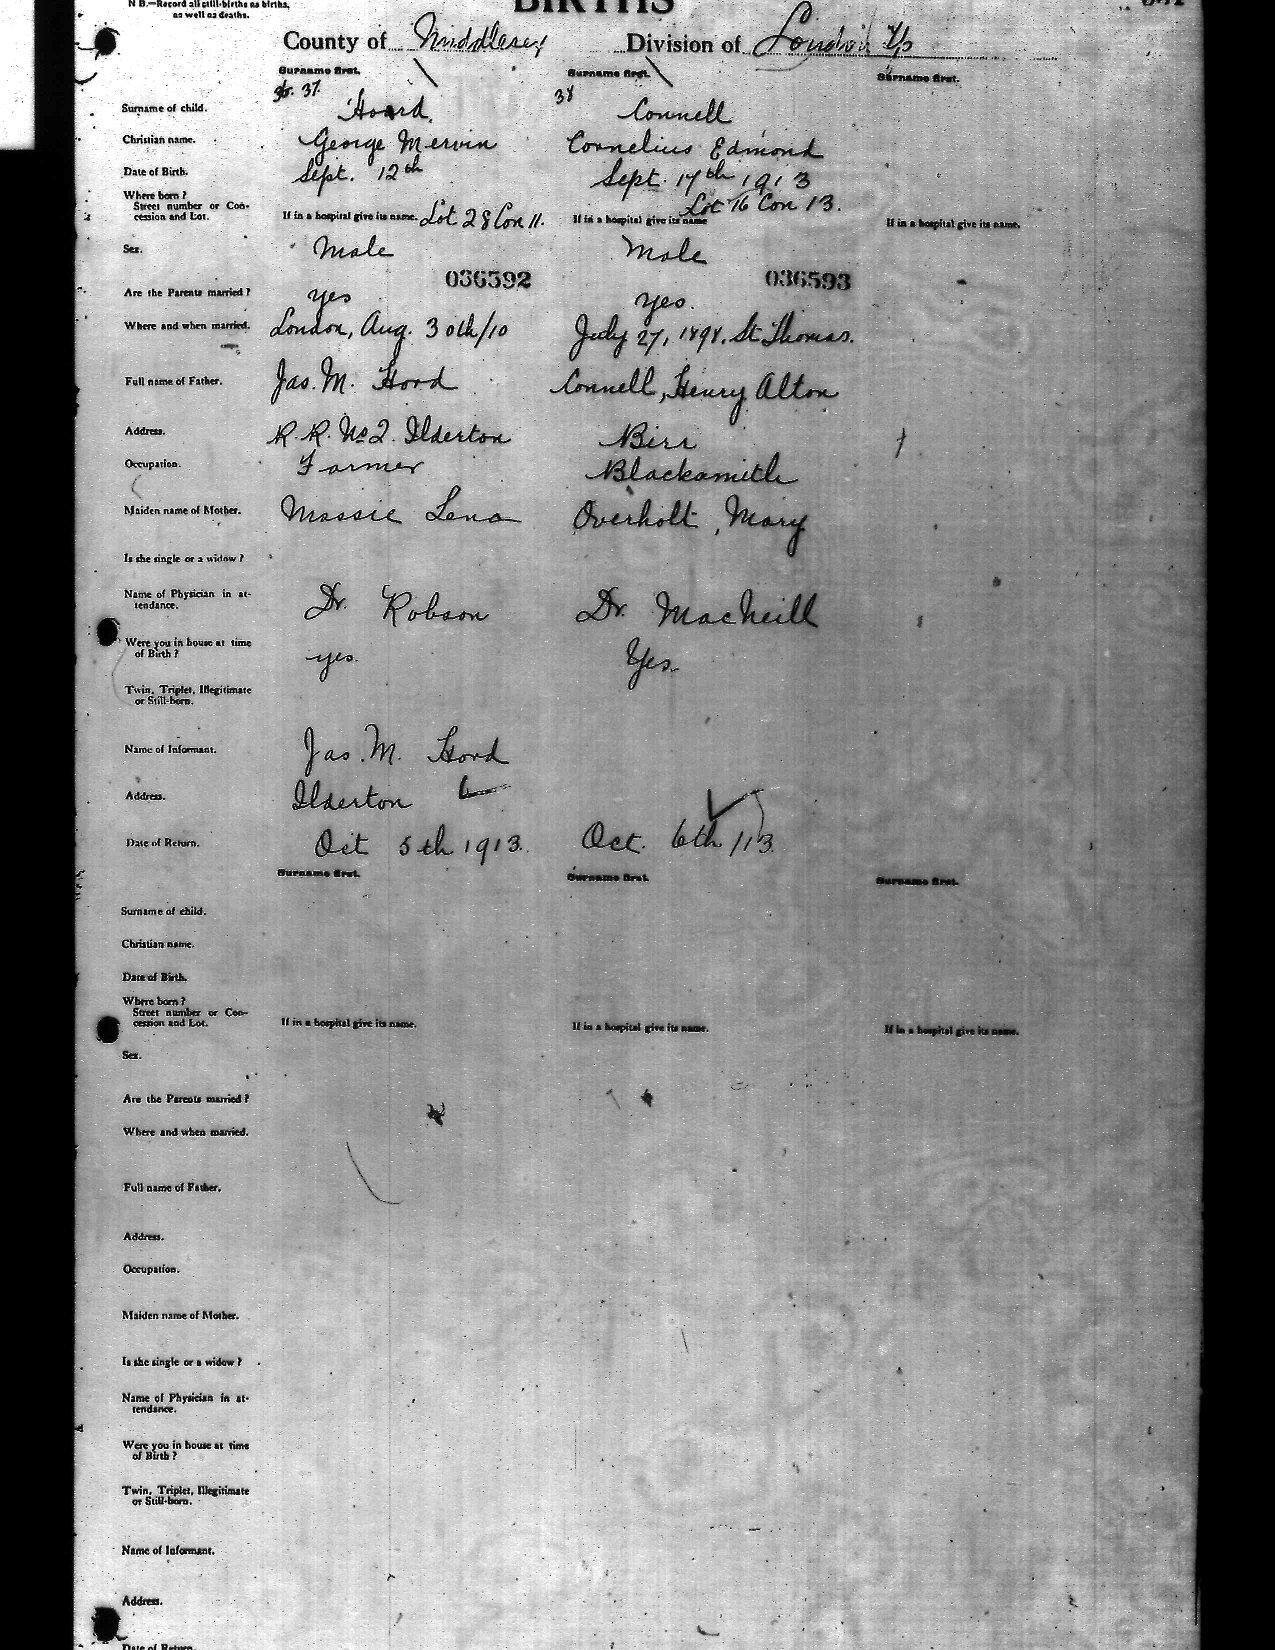 N B.—Record all still-births as births,
as well as deaths.
BIRTHS
County of Middlesex Division of London Tp
Surname first. Surname first. Surname first.
37 38
Surname of child. Hoard. Connell
Christian name. George Mervin Cornelius Edmond
Date of Birth. Sept. 12th Sept. 17th 1913
Where born?
Street number or Con-
cession and Lot. If in a hospital give its name. Lot 28 Con 11. If in a hospital give its name Lot 16 Con 13. If in a hospital give its name.
Sex. Male Male
036592 036593
Are the Parents married? yes yes.
Where and when married. London, Aug. 30th/10 July 27, 1898. St Thomas.
Full name of Father. Jas. M. Hord Connell, Henry Alton
Address. R. R. No 2. Ilderton Birr
Occupation. Farmer Blacksmith
Maiden name of Mother. Massie Lena Overholt, Mary
Is she single or a widow?
Name of Physician in at-
tendance. Dr. Robson Dr. MacNeill
Were you in house at time
of Birth? yes. Yes.
Twin, Triplet, Illegitimate
or Still-born.
Name of Informant. Jas. M. Hord
Address. Ilderton
Date of Return. Oct 5th 1913. Oct. 6th /13
Surname first. Surname first. Surname first.
Surname of child.
Christian name.
Date of Birth.
Where born?
Street number or Con-
cession and Lot. If in a hospital give its name. If in a hospital give its name. If in a hospital give its name.
Sex.
Are the Parents married?
Where and when married.
Full name of Father.
Address.
Occupation.
Maiden name of Mother.
Is she single or a widow?
Name of Physician in at-
tendance.
Were you in house at time
of Birth?
Twin, Triplet, Illegitimate
or Still-born.
Name of Informant.
Address.
Date of Return.